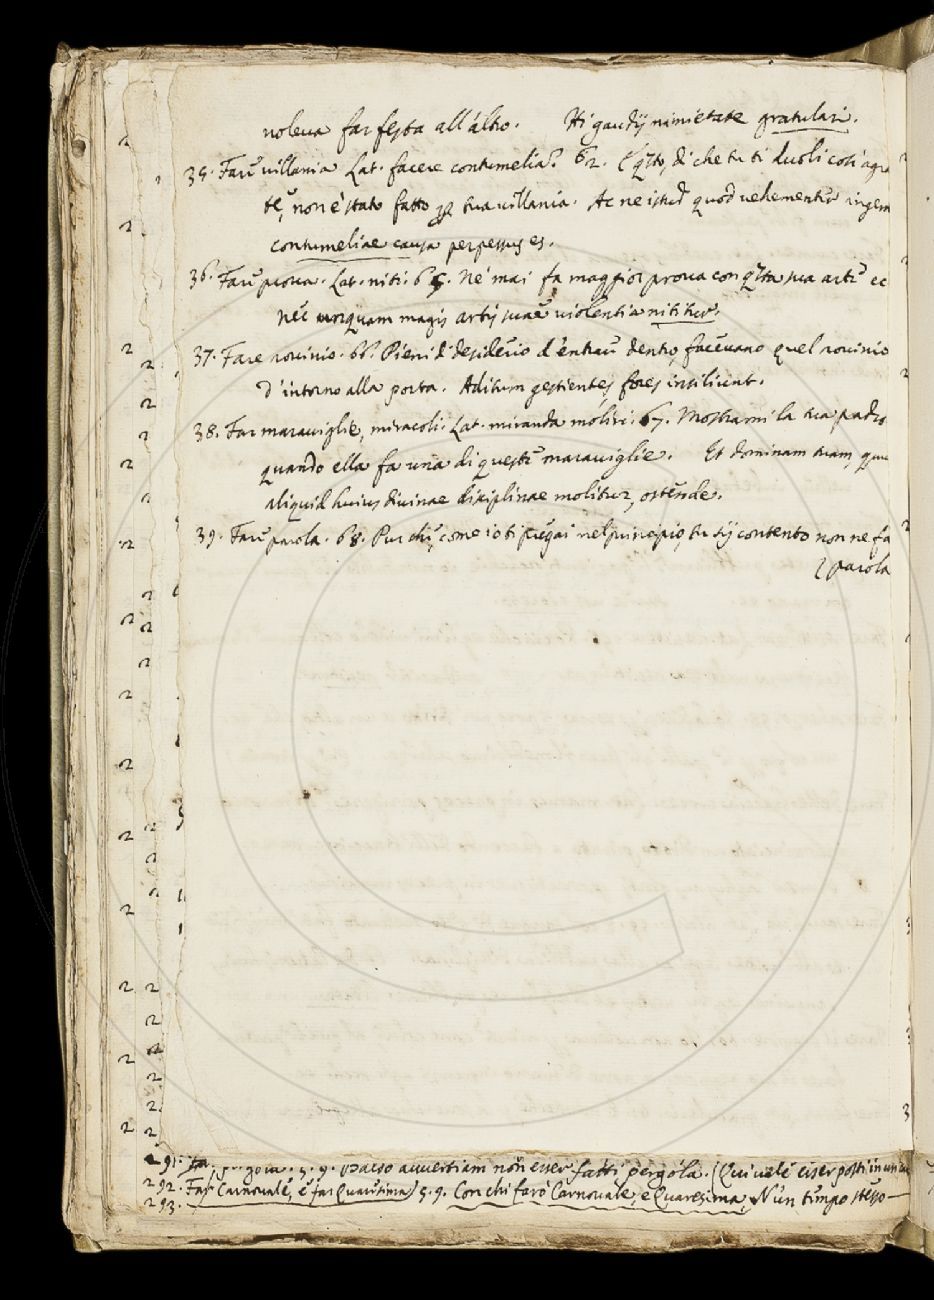 voleva far festa all'altro. Hi gaudij nimietate gratulari.
35. Fare villania Lat. facere contumelia. 62. E q̃sto, di che tu ti duoli così agra
te, non è stato fatto p tua villania. Ac ne istud quod vehementer ingem
contumeliae causa perpessus es.
36. Fare prova. Lat. niti. 65. Né mai fa maggior prova con q̃sta sua arte ec
nec unquam magis artis suae violentia nititur.
37. Fare rovinio. 66. Pieni di desiderio d'entrare dentro, facevano quel rovinio
d'intorno alla porta. Aditum gestientes fores insiliunt.
38. Far maraviglie, miracoli. Lat. miranda moliri. 67. Mostrami la tua padro
quando ella fa una di queste maraviglie. Et dominam tuam, quu
aliquid huius divinae disciplinae molitur, ostende.
39. Fare parola. 68. Pur che, come io ti pregai nel principio, tu sij contento non ne fa
parola
291. 5. 9. avvertiam non esser fatti pergola. (Qui vale esser posti in un
292. Far Carnovale, e far Quaresima) 5. 9. Con chi farò Carnovale, e Quaresima, N'un tempo stesso
293.